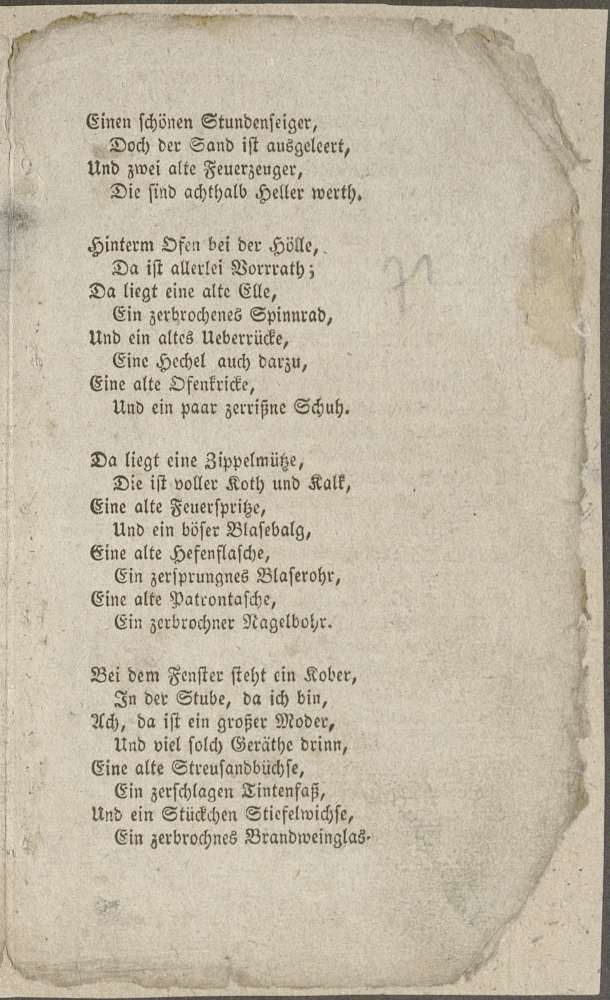 Einen schönen Stundenseiger,
Doch der Sand ist ausgeleert,
Und zwei alte Feuerzeuger,
Die sind achthalb Heller werth.
Hinterm Ofen bei der Hölle,
Da ist allerlei Vorrrath;
Da liegt eine alte Elle,
Ein zerbrochenes Spinnrad,
Und ein altes Ueberrücke,
Eine Hechel auch darzu,
Eine alte Ofenkricke,
Und ein paar zerrißne Schuh.
Da liegt eine Zippelmütze,
Die ist voller Koth und Kalk,
Eine alte Feuerspritze,
Und ein böser Blasebalg,
Eine alte Hefenflasche,
Ein zersprungnes Blaserohr,
Eine alte Patrontasche,
Ein zerbrochner Nagelbohr.
Bei dem Fenster steht ein Kober,
In der Stube, da ich bin,
Ach, da ist ein großer Moder,
Und viel solch Geräthe drinn,
Eine alte Streusandbüchse,
Ein zerschlagen Tintenfaß,
Und ein Stückchen Stiefelwichse,
Ein zerbrochnes Brandweinglas.